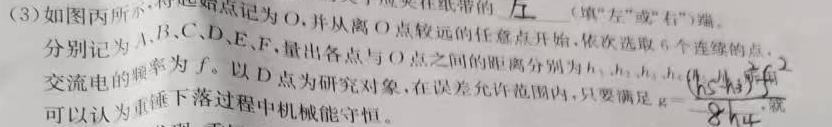 在纸带的 左 (填"左"或"右")端。
(3)如图丙所示,将起始点记为O,并从离O点较远的任意点开始,依次选取6个连续的点,
分别记为A、B、C、D、E、F,量出各点与O点之间的距离分别为h₁、h₂、h₃、h₄
交流电的频率为f。以D点为研究对象,在误差允许范围内,只要满足g=(h₅-h₃)²f²/8h₄,就
可以认为重锤下落过程中机械能守恒。